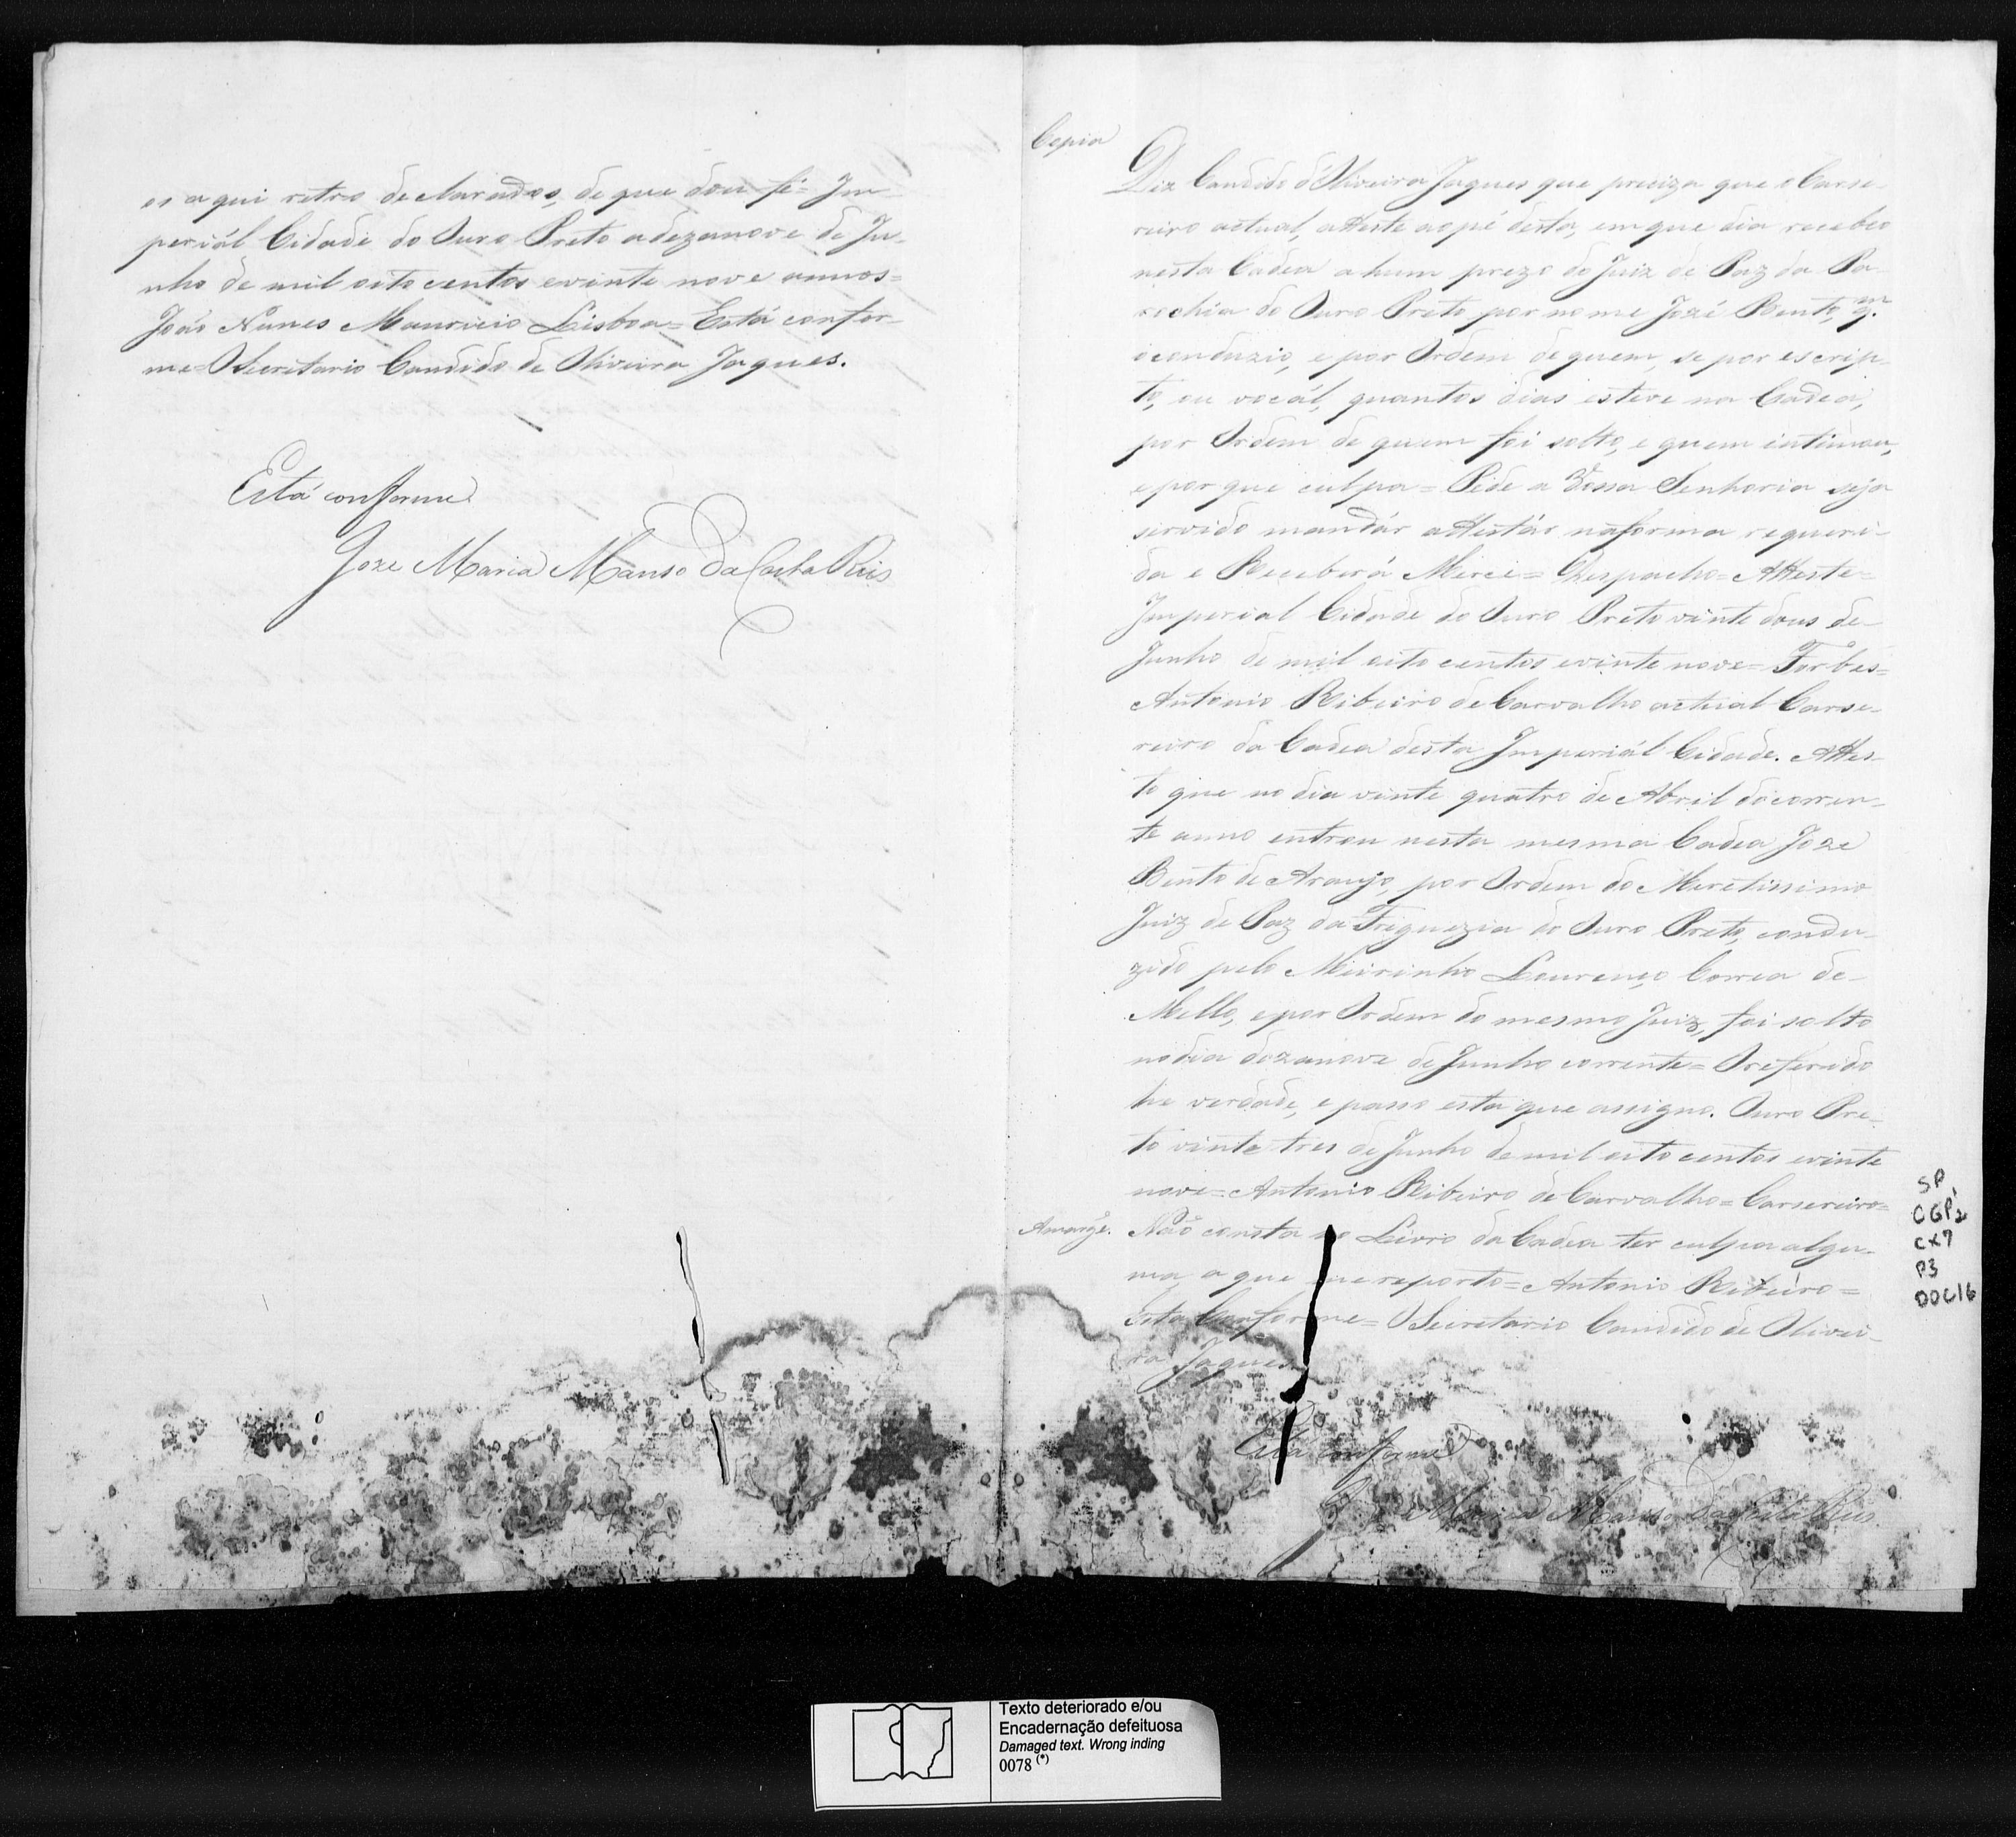 es aqui retro declarados, de que dou fé= Im-
periál Cidade do Ouro Preto a dezanove de Ju-
nho de mil oito centos e vinte nove annos=
João Nunes Mauricio Lisboa= Está confor-
me= O Secretario Candido de Oliveira Jaques.
Está conforme
Joze Maria Manso da Costa Reis
Copia
Diz Candido d'Oliveira Jaques que preciza que o Carse-
reiro actual, atteste ao pé desta, em que dia recebeo
nesta Cadea a hum prezo do Juiz de Paz da Pa-
rochia do Ouro Preto por nome Jozé Bento, qm.
o conduzio, e por Ordem de quem, se por escrip-
to, ou vocál, quantos dias esteve na Cadea,
por Ordem de quem foi solto, e quem intimou,
e por que culpa= Pede a Vossa Senhoria seja
servido mandár attestár na forma requeri-
da e Receberá Merce= Despacho= Atteste=
Imperial Cidade do Ouro Preto vinte dous de
Junho de mil oito centos e vinte nove= Forbes=
Antonio Ribeiro de Carvalho actual Carse-
reiro da Cadea desta Imperiál Cidade. Attes-
to que no dia vinte quatro de Abril do corren-
te anno entrou nesta mesma Cadea Joze
Bento de Araujo, por Ordem do Meretissimo
Juiz de Paz da Freguezia do Ouro Preto, condu-
zido pelo Meirinho Lourenço Correa de
Mello, e por Ordem do mesmo Juiz, foi solto
no dia dezanove de Junho corrente= O referido
he verdade, e passo esta que assigno. Ouro Pre-
to vinte tres de Junho de mil oito centos e vinte
nove= Antonio Ribeiro de Carvalho= Carsereiro=
Amargê. Não consta no Livro da Cadea ter culpa algu-
ma, a que me reporto= Antonio Ribeiro=
Esta Conforme= O Secretario Candido de Olivei-
ra Jaques.
Está conforme
Joze Maria Manso da Costa Reis
SP
CGP1
CX7
P3
DOC16
Texto deteriorado e/ou
Encadernação defeituosa
Damaged text. Wrong inding
0078 (*)